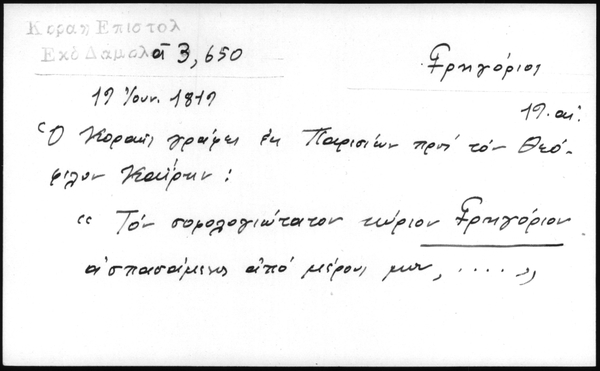 Κοραη Επιστολ
Εκδ Δαμαλᾶ 3, 650
Γρηγόριος
19 Ἰουν. 1819
19. αἰ.
Ὁ Κοραῆς γράφει ἐκ Παρισίων πρός τόν Θεό-
φιλον Καΐρην :
" Τόν σοφολογιώτατον κύριον Γρηγόριον
ἀσπασάμενος ἀπό μέρους μου, ..... "